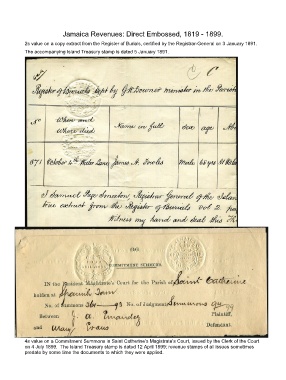 Jamaica Revenues: Direct Embossed, 1819 - 1899.
2s value on a copy extract from the Register of Burials, certified by the Registrar-General on 3 January 1891.
The accompanying Island Treasury stamp is dated 5 January 1891.
C
Register of Burials kept by G.R. Downer minister in the
No When and where died Name in full sex age
October 4th Water Lane James A. male 65 yrs
I Samuel Registrar General of the
true extract from the Register of Burials vol 2
Witness my hand and seal this
COMMITMENT SUMMONS.
IN the Resident Magistrate's Court for the Parish of Saint Catherine
holden at Spanish Town
No. of Summons No. of Judgment Summons
Between J. A. Plaintiff,
and Mary Evans Defendant.
4s value on a Commitment Summons in Saint Catherine's Magistrate's Court, issued by the Clerk of the Court
on 4 July 1899. The Island Treasury stamp is dated 12 April 1899: revenue stamps of all issues sometimes
predate by some time the documents to which they were applied.